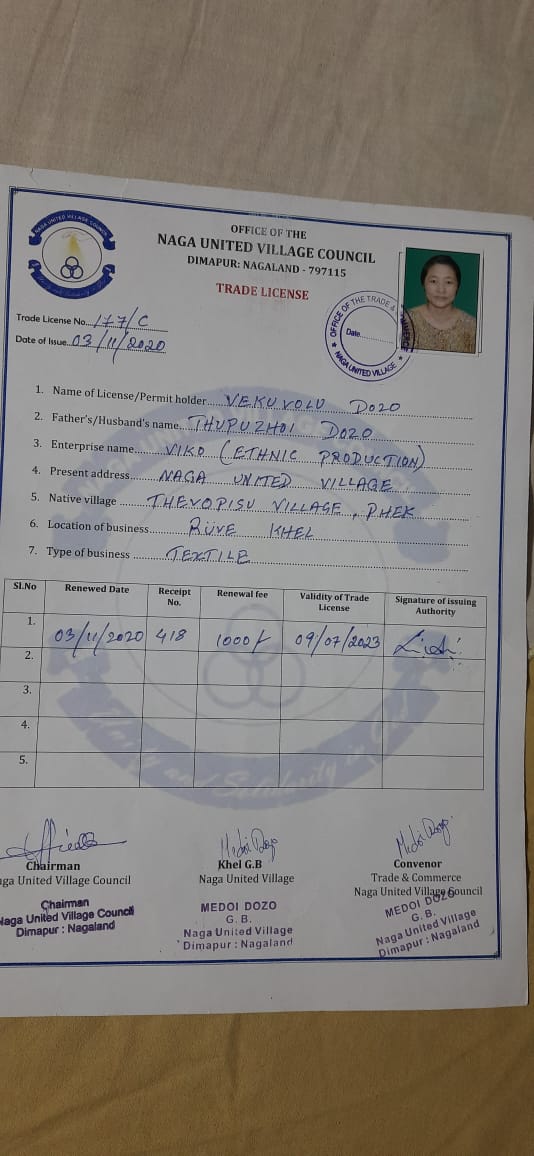 NAGA UNITED VILLAGE COUNCIL
OFFICE OF THE
NAGA UNITED VILLAGE COUNCIL
DIMAPUR: NAGALAND - 797115
TRADE LICENSE
OFFICE OF THE TRADE &
Date
NAGA UNITED VILLAGE
Trade License No. 177/C
Date of Issue. 03/11/2020
1. Name of License/Permit holder VEKUVOLU DOZO
2. Father's/Husband's name THUPUZHOI DOZO
3. Enterprise name VIKO (ETHNIC PRODUCTION)
4. Present address NAGA UNITED VILLAGE
5. Native village THEVOPISU VILLAGE, PHEK
6. Location of business RÜVE KHEL
7. Type of business TEXTILE
Sl.No Renewed Date Receipt No. Renewal fee Validity of Trade License Signature of issuing Authority
1. 03/11/2020 418 1000/- 09/07/2023
2.
3.
4.
5.
Unity and Solidarity in
Chairman Khel G.B Convenor
Naga United Village Council Naga United Village Trade & Commerce
Naga United Village Council
Chairman
Naga United Village Council
Dimapur : Nagaland
MEDOI DOZO
G. B.
Naga United Village
Dimapur : Nagaland
MEDOI DOZO
G. B.
Naga United Village
Dimapur : Nagaland